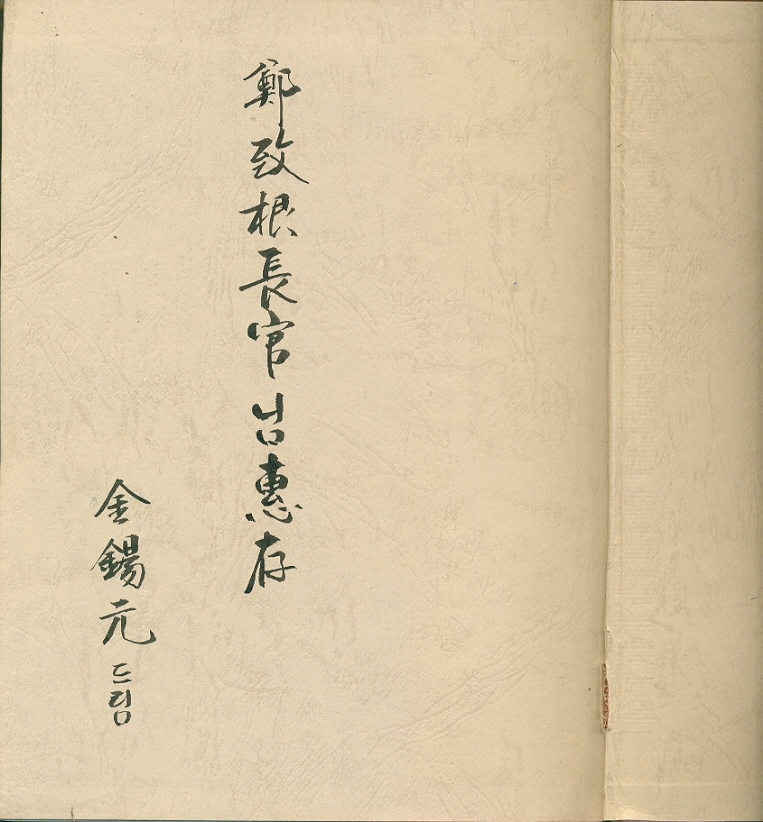 鄭致根長官님惠存
金錫元 드림